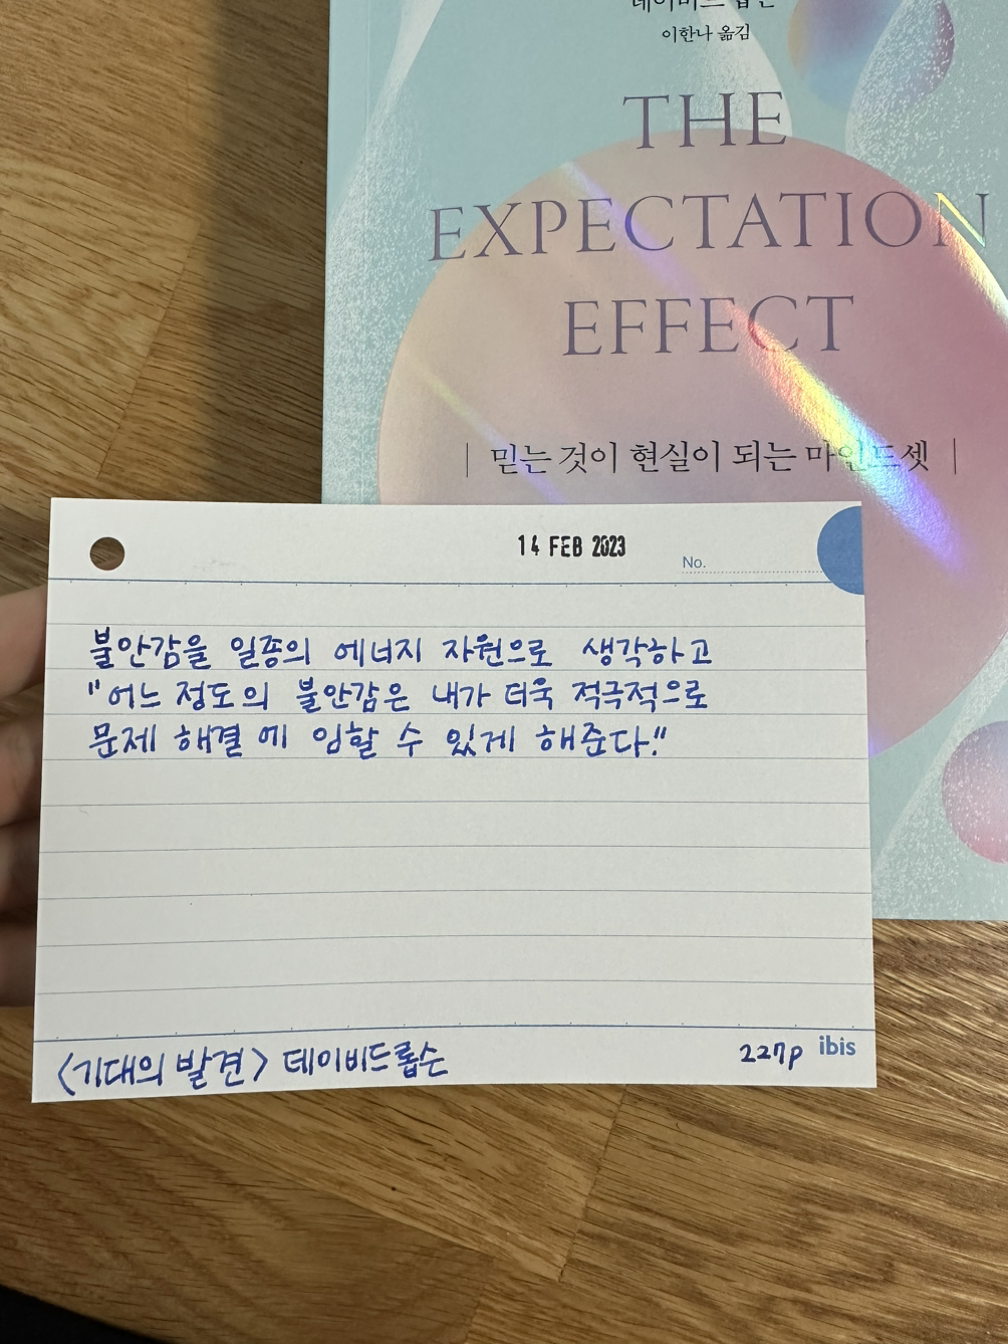 이한나 옮김
THE
EXPECTATION
EFFECT
믿는 것이 현실이 되는 마인드셋
14 FEB 2023
No.
불안감을 일종의 에너지 자원으로 생각하고
"어느 정도의 불안감은 내가 더욱 적극적으로
문제 해결에 임할 수 있게 해준다."
<기대의 발견> 데이비드 롭슨
227p
ibis